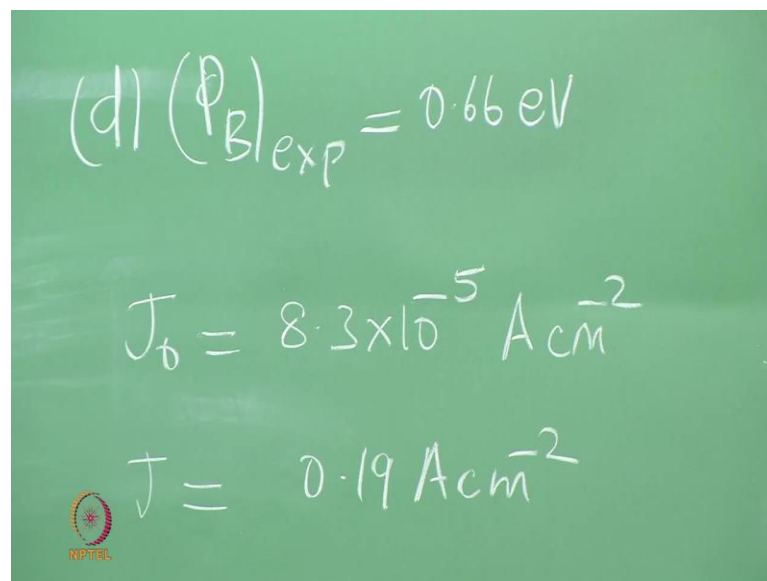 (d) (φB)exp = 0.66 eV
J0 = 8.3×10^-5 A cm^-2
J = 0.19 A cm^-2
NPTEL